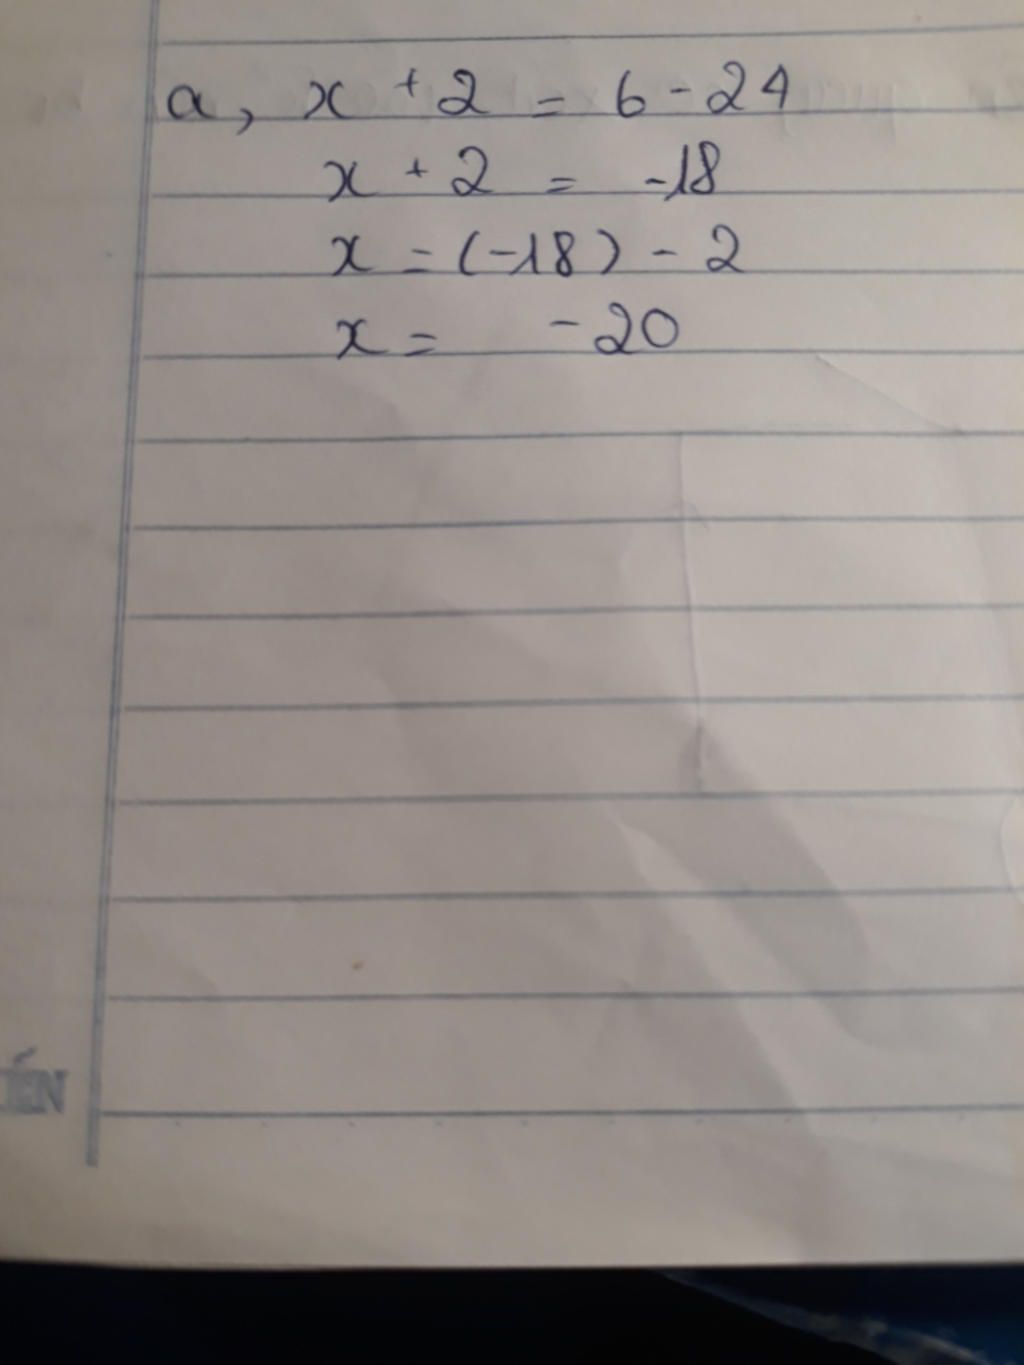 a, x + 2 = 6 - 24
x + 2 = -18
x = (-18) - 2
x = -20